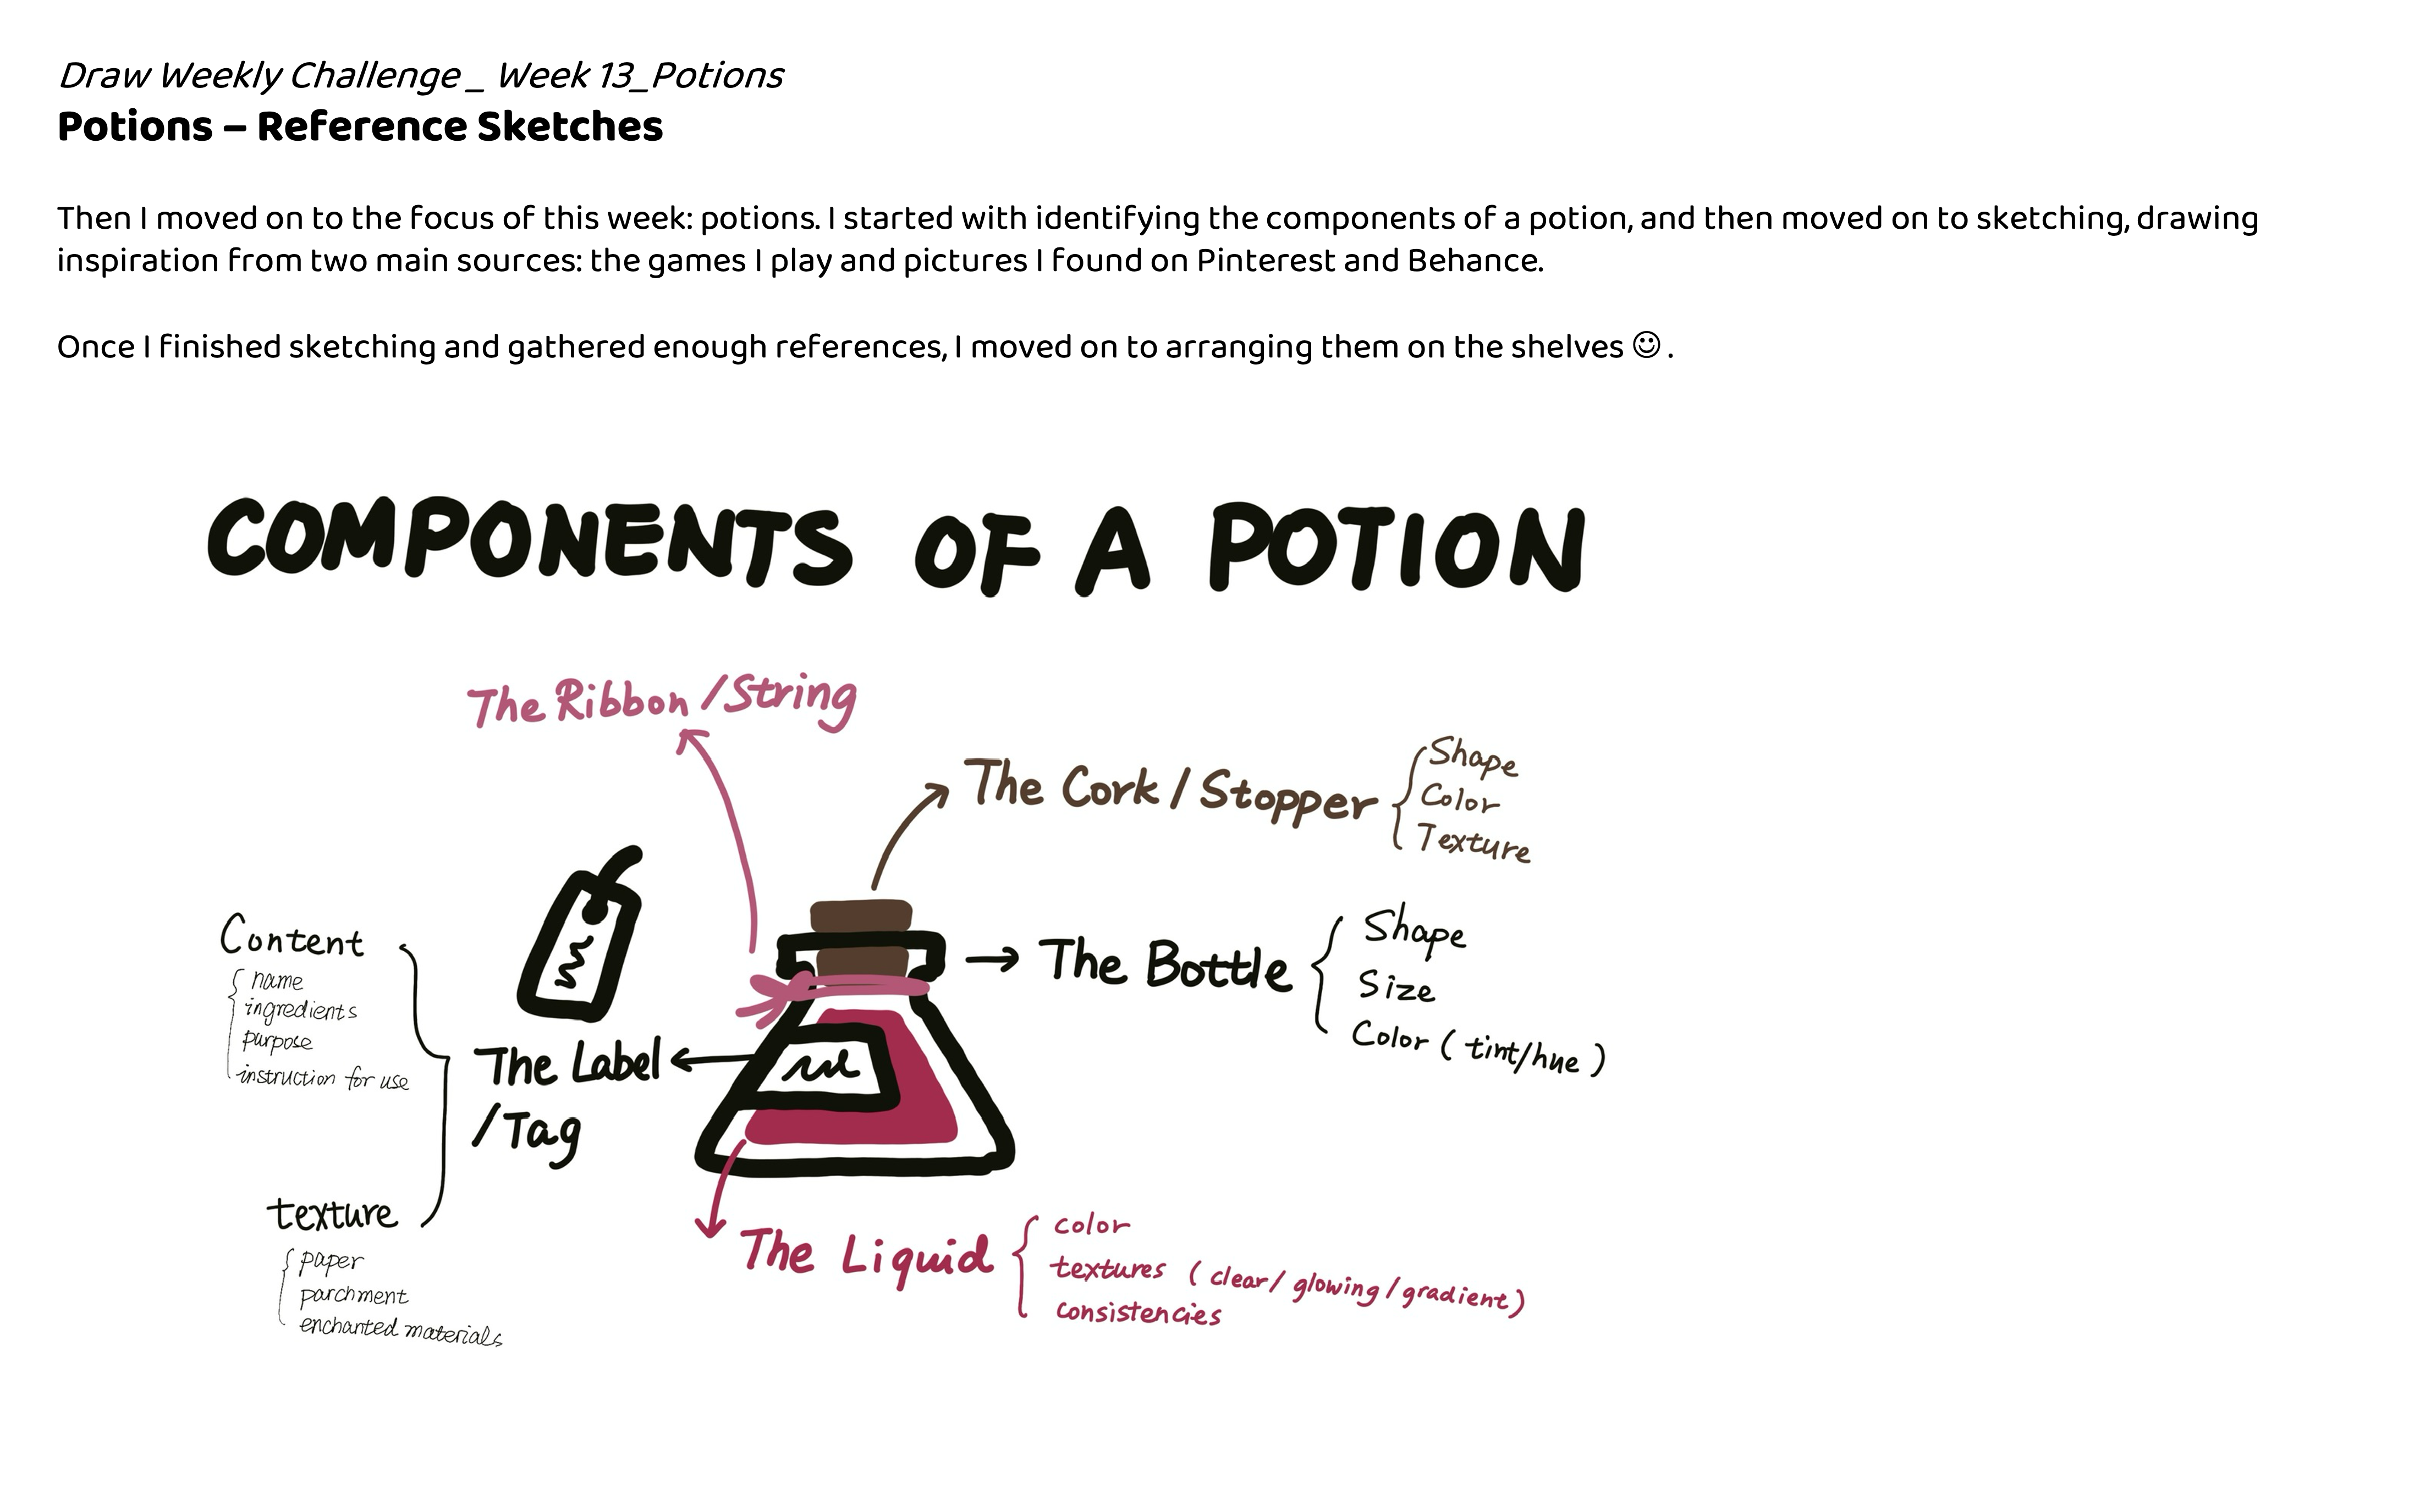 Draw Weekly Challenge_ Week 13_Potions
Potions – Reference Sketches
Then I moved on to the focus of this week: potions. I started with identifying the components of a potion, and then moved on to sketching, drawing
inspiration from two main sources: the games I play and pictures I found on Pinterest and Behance.
Once I finished sketching and gathered enough references, I moved on to arranging them on the shelves ☺.
COMPONENTS OF A POTION
The Ribbon/String
The Cork/Stopper
Shape
Color
Texture
The Bottle
Shape
Size
Color (tint/hue)
The Label
/Tag
Content
name
ingredients
purpose
instruction for use
texture
paper
parchment
enchanted materials
The Liquid
color
textures (clear/glowing/gradient)
consistencies